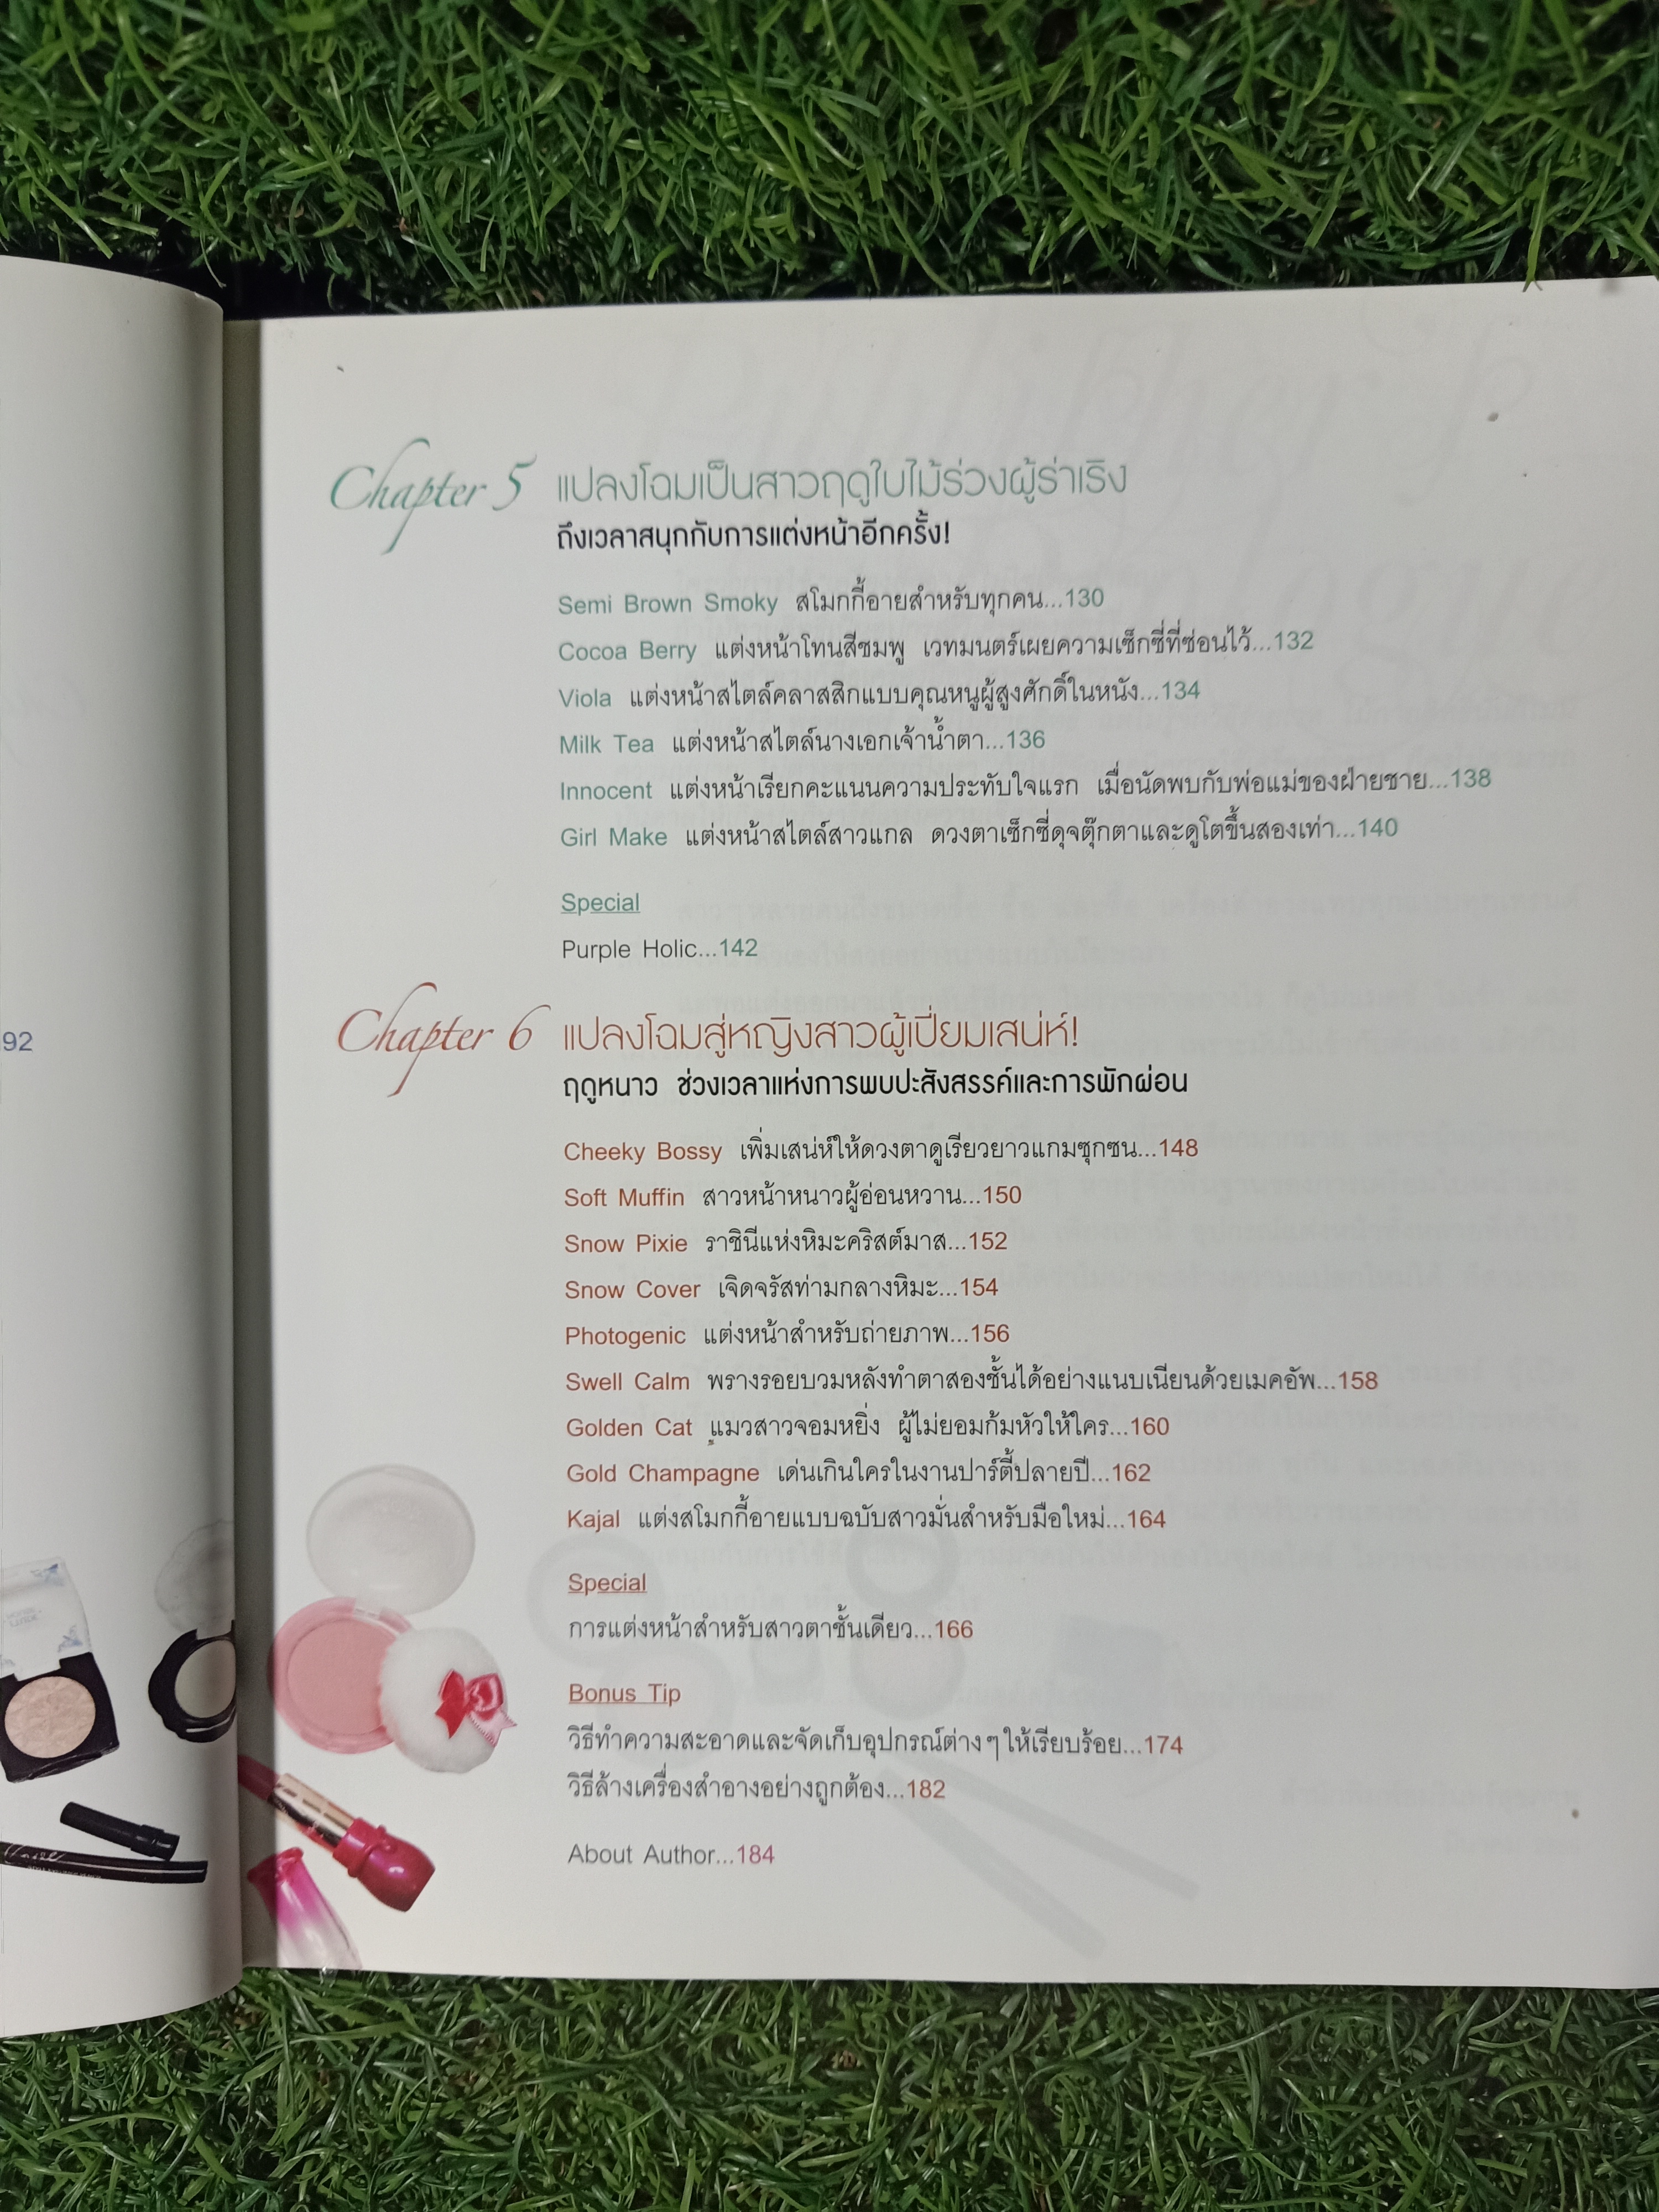 92
Chapter 5 แปลงโฉมเป็นสาวฤดูใบไม้ร่วงผู้ร่าเริง
ถึงเวลาสนุกกับการแต่งหน้าอีกครั้ง!
Semi Brown Smoky สโมกกี้อายสำหรับทุกคน...130
Cocoa Berry แต่งหน้าโทนสีชมพู เวทมนตร์เผยความเซ็กซี่ที่ซ่อนไว้...132
Viola แต่งหน้าสไตล์คลาสสิกแบบคุณหนูผู้สูงศักดิ์ในหนัง...134
Milk Tea แต่งหน้าสไตล์นางเอกเจ้าน้ำตา...136
Innocent แต่งหน้าเรียกคะแนนความประทับใจแรก เมื่อนัดพบกับพ่อแม่ของฝ่ายชาย...138
Girl Make แต่งหน้าสไตล์สาวแกล ดวงตาเซ็กซี่ดุจตุ๊กตาและดูโตขึ้นสองเท่า...140
Special
Purple Holic...142
Chapter 6 แปลงโฉมสู่หญิงสาวผู้เปี่ยมเสน่ห์!
ฤดูหนาว ช่วงเวลาแห่งการพบปะสังสรรค์และการพักผ่อน
Cheeky Bossy เพิ่มเสน่ห์ให้ดวงตาดูเรียวยาวแกมซุกซน...148
Soft Muffin สาวหน้าหนาวผู้อ่อนหวาน...150
Snow Pixie ราชินีแห่งหิมะคริสต์มาส...152
Snow Cover เจิดจรัสท่ามกลางหิมะ...154
Photogenic แต่งหน้าสำหรับถ่ายภาพ...156
Swell Calm พรางรอยบวมหลังทำตาสองชั้นได้อย่างแนบเนียนด้วยเมคอัพ...158
Golden Cat แมวสาวจอมหยิ่ง ผู้ไม่ยอมก้มหัวให้ใคร...160
Gold Champagne เด่นเกินใครในงานปาร์ตี้ปลายปี...162
Kajal แต่งสโมกกี้อายแบบฉบับสาวมั่นสำหรับมือใหม่...164
Special
การแต่งหน้าสำหรับสาวตาชั้นเดียว...166
Bonus Tip
วิธีทำความสะอาดและจัดเก็บอุปกรณ์ต่างๆให้เรียบร้อย...174
วิธีล้างเครื่องสำอางอย่างถูกต้อง...182
About Author...184